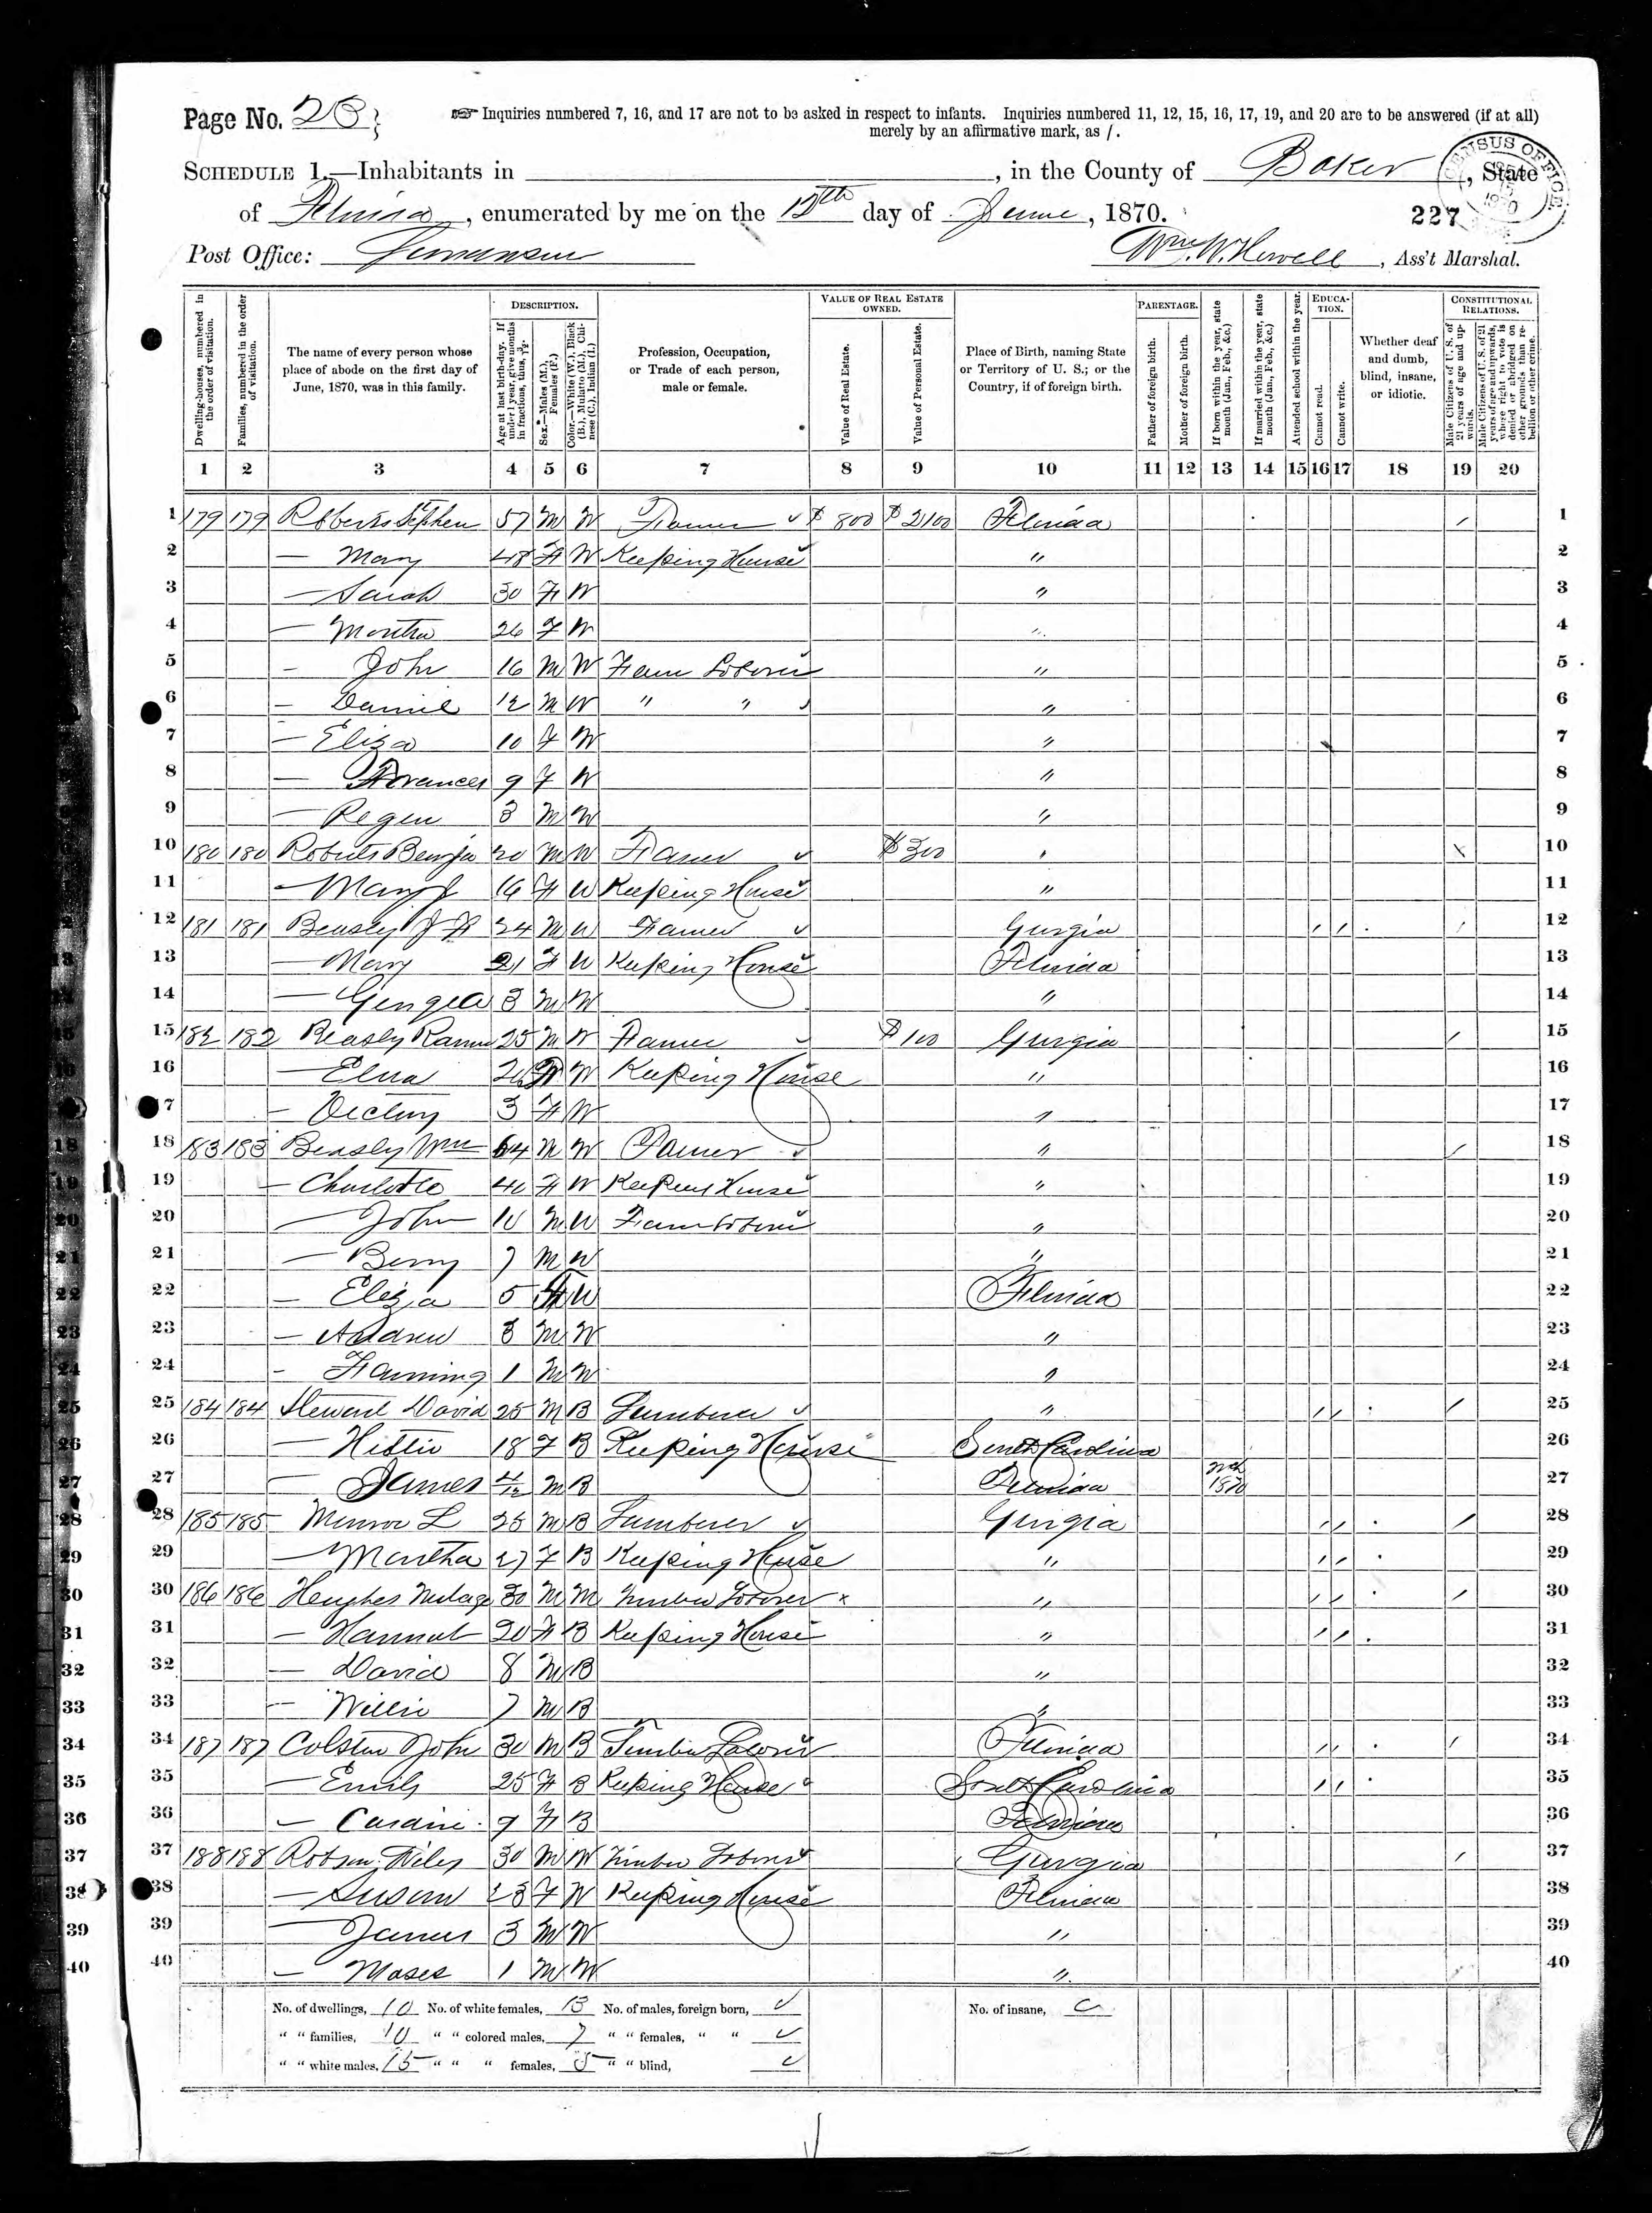 Page No. 23
Inquiries numbered 7, 16, and 17 are not to be asked in respect to infants. Inquiries numbered 11, 12, 15, 16, 17, 19, and 20 are to be answered (if at all)
merely by an affirmative mark, as /.
SCHEDULE 1.—Inhabitants in , in the County of Baker, State
of Florida, enumerated by me on the 12th day of June, 1870.
227
CENSUS OFFICE 1870
Post Office: Wm. W. Howell, Ass't Marshal.
Dwelling-houses, numbered in the order of visitation.
Families, numbered in the order of visitation.
The name of every person whose place of abode on the first day of June, 1870, was in this family.
DESCRIPTION.
Age at last birth-day. If under 1 year, give months in fractions, thus, 3/12.
Sex.—Males (M.), Females (F.)
Color.—White (W.), Black (B.), Mulatto (M.), Chinese (C.), Indian (I.)
Profession, Occupation, or Trade of each person, male or female.
VALUE OF REAL ESTATE OWNED.
Value of Real Estate.
Value of Personal Estate.
Place of Birth, naming State or Territory of U. S.; or the Country, if of foreign birth.
PARENTAGE.
Father of foreign birth.
Mother of foreign birth.
If born within the year, state month (Jan., Feb., &c.)
If married within the year, state month (Jan., Feb., &c.)
Attended school within the year.
EDUCATION.
Cannot read.
Cannot write.
Whether deaf and dumb, blind, insane, or idiotic.
CONSTITUTIONAL RELATIONS.
Male Citizens of U. S. of 21 years of age and upwards.
Male Citizens of U. S. of 21 years of age and upwards, where right to vote is denied or abridged on other grounds than rebellion or other crime.
1 2 3 4 5 6 7 8 9 10 11 12 13 14 15 16 17 18 19 20
1 179 179 Roberts Stephen 57 M W Farmer $ 800 $ 2100 Florida / 1
2 — Mary 48 F W Keeping House " 2
3 — Sarah 30 F W " 3
4 — Martha 26 F W " 4
5 — John 16 M W Farm Laborer " 5
6 — Daniel 12 M W " " " 6
7 — Eliza 10 F W " 7
8 — Frances 9 F W " 8
9 — 3 M W " 9
10 180 180 Roberts Benja 20 M W Farmer $ 300 " 10
11 — Mary J 16 F W Keeping House " 11
12 181 181 Beasly J F 24 M W Farmer Georgia / / / 12
13 — Mary 21 F W Keeping House Florida 13
14 — 3 M W " 14
15 182 182 Beasly 25 M W Farmer $ 100 Georgia / 15
16 — F W Keeping House " 16
17 — Victory 3 F W " 17
18 183 183 Beasly Wm 64 M W Farmer " / 18
19 — Charlotte 40 F W Keeping House " 19
20 — John 10 M W Farm Laborer " 20
21 — Berry 7 M W " 21
22 — Eliza 5 F W Florida 22
23 — Andrew 3 M W " 23
24 — 1 M W " 24
25 184 184 Steward David 25 M B Lumberer " / / / 25
26 — Hettie 18 F B Keeping House South Carolina 26
27 — James 4/12 M B Florida 1870 27
28 185 185 Monroe L 25 M B Lumberer Georgia / / / 28
29 — Martha 27 F B Keeping House " / / 29
30 186 186 Hughes 30 M M Timber Laborer " / / / 30
31 — Hannah 20 F B Keeping House " / / 31
32 — David 8 M B " 32
33 — Willie 7 M B " 33
34 187 187 Colston John 30 M B Timber Laborer Florida / / / 34
35 — Emily 25 F B Keeping House South Carolina / / 35
36 — 9 F B Florida 36
37 188 188 30 M W Timber Laborer Georgia / 37
38 — Susan 23 F W Keeping House Florida 38
39 — James 3 M W " 39
40 — Moses 1 M W " 40
No. of dwellings, 10 No. of white females, 13 No. of males, foreign born, No. of insane,
" " families, 10 " " colored males, 7 " " females, " "
" " white males, 15 " " " females, 5 " " blind,